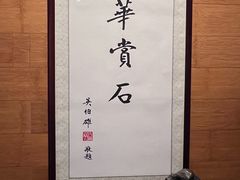 華賞石
吳伯雄
敬題